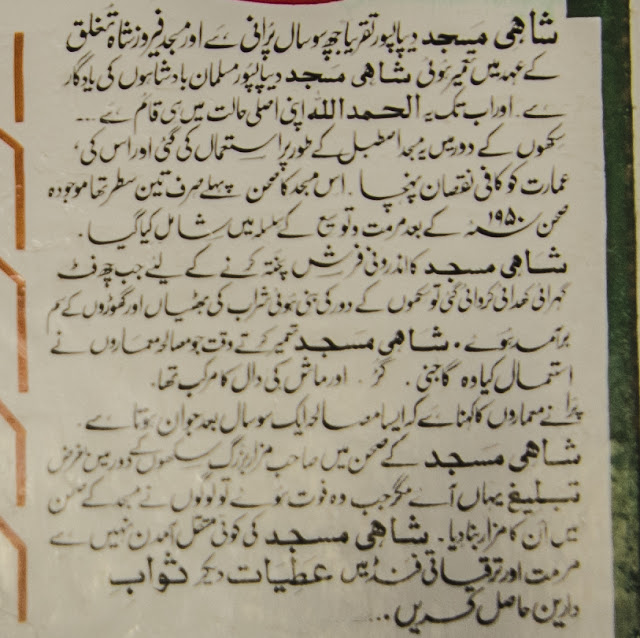 شاہی مسجد دیپالپور تقریباً چھ سو سال پرانی ہے اور مسجد فیروز شاہ تغلق
کے عہد میں تعمیر ہوئی شاہی مسجد دیپالپور مسلمان بادشاہوں کی یادگار
ہے۔ اور اب تک یہ الحمد اللہ اپنی اصلی حالت میں ہی قائم ہے ۔۔۔
سکھوں کے دور میں یہ مسجد اصطبل کے طور پر استعمال کی گئی اور اس کی،
عمارت کو کافی نقصان پہنچا ۔ اس مسجد کا صحن پہلے صرف تین سطر تھا موجودہ
صحن سنہ ۱۹۵۰ کے بعد مرمت و توسیع کے سلسلہ میں شامل کیا گیا۔
شاہی مسجد کا اندرونی فرش پختہ کرنے کے لیے جب چھ فٹ
گہرائی کھدائی کروائی گئی تو سکھوں کے دور کی بنی ہوئی شراب کی بھٹیاں اور گھوڑوں کے سم
برآمد ہوئے۔ شاہی مسجد تعمیر کرتے وقت جو مصالحہ معماروں نے
استعمال کیا وہ گاجنی ۔ گڑ ۔ اور ماش کی دال کا مرکب تھا۔
پرانے معماروں کا کہنا ہے کہ ایسا مصالحہ ایک سو سال بعد جوان ہوتا ہے۔
شاہی مسجد کے صحن میں صاحب مزار بزرگ سکھوں کے دور میں بغرض
تبلیغ یہاں آئے مگر جب وہ فوت ہوئے تو لوگوں نے مسجد کے صحن
میں ان کا مزار بنا دیا۔ شاہی مسجد کی کوئی مستقل آمدن نہیں ہے
مرمت اور ترقیاتی فنڈ میں عطیات دیکر ثواب
دارین حاصل کریں ۔۔۔